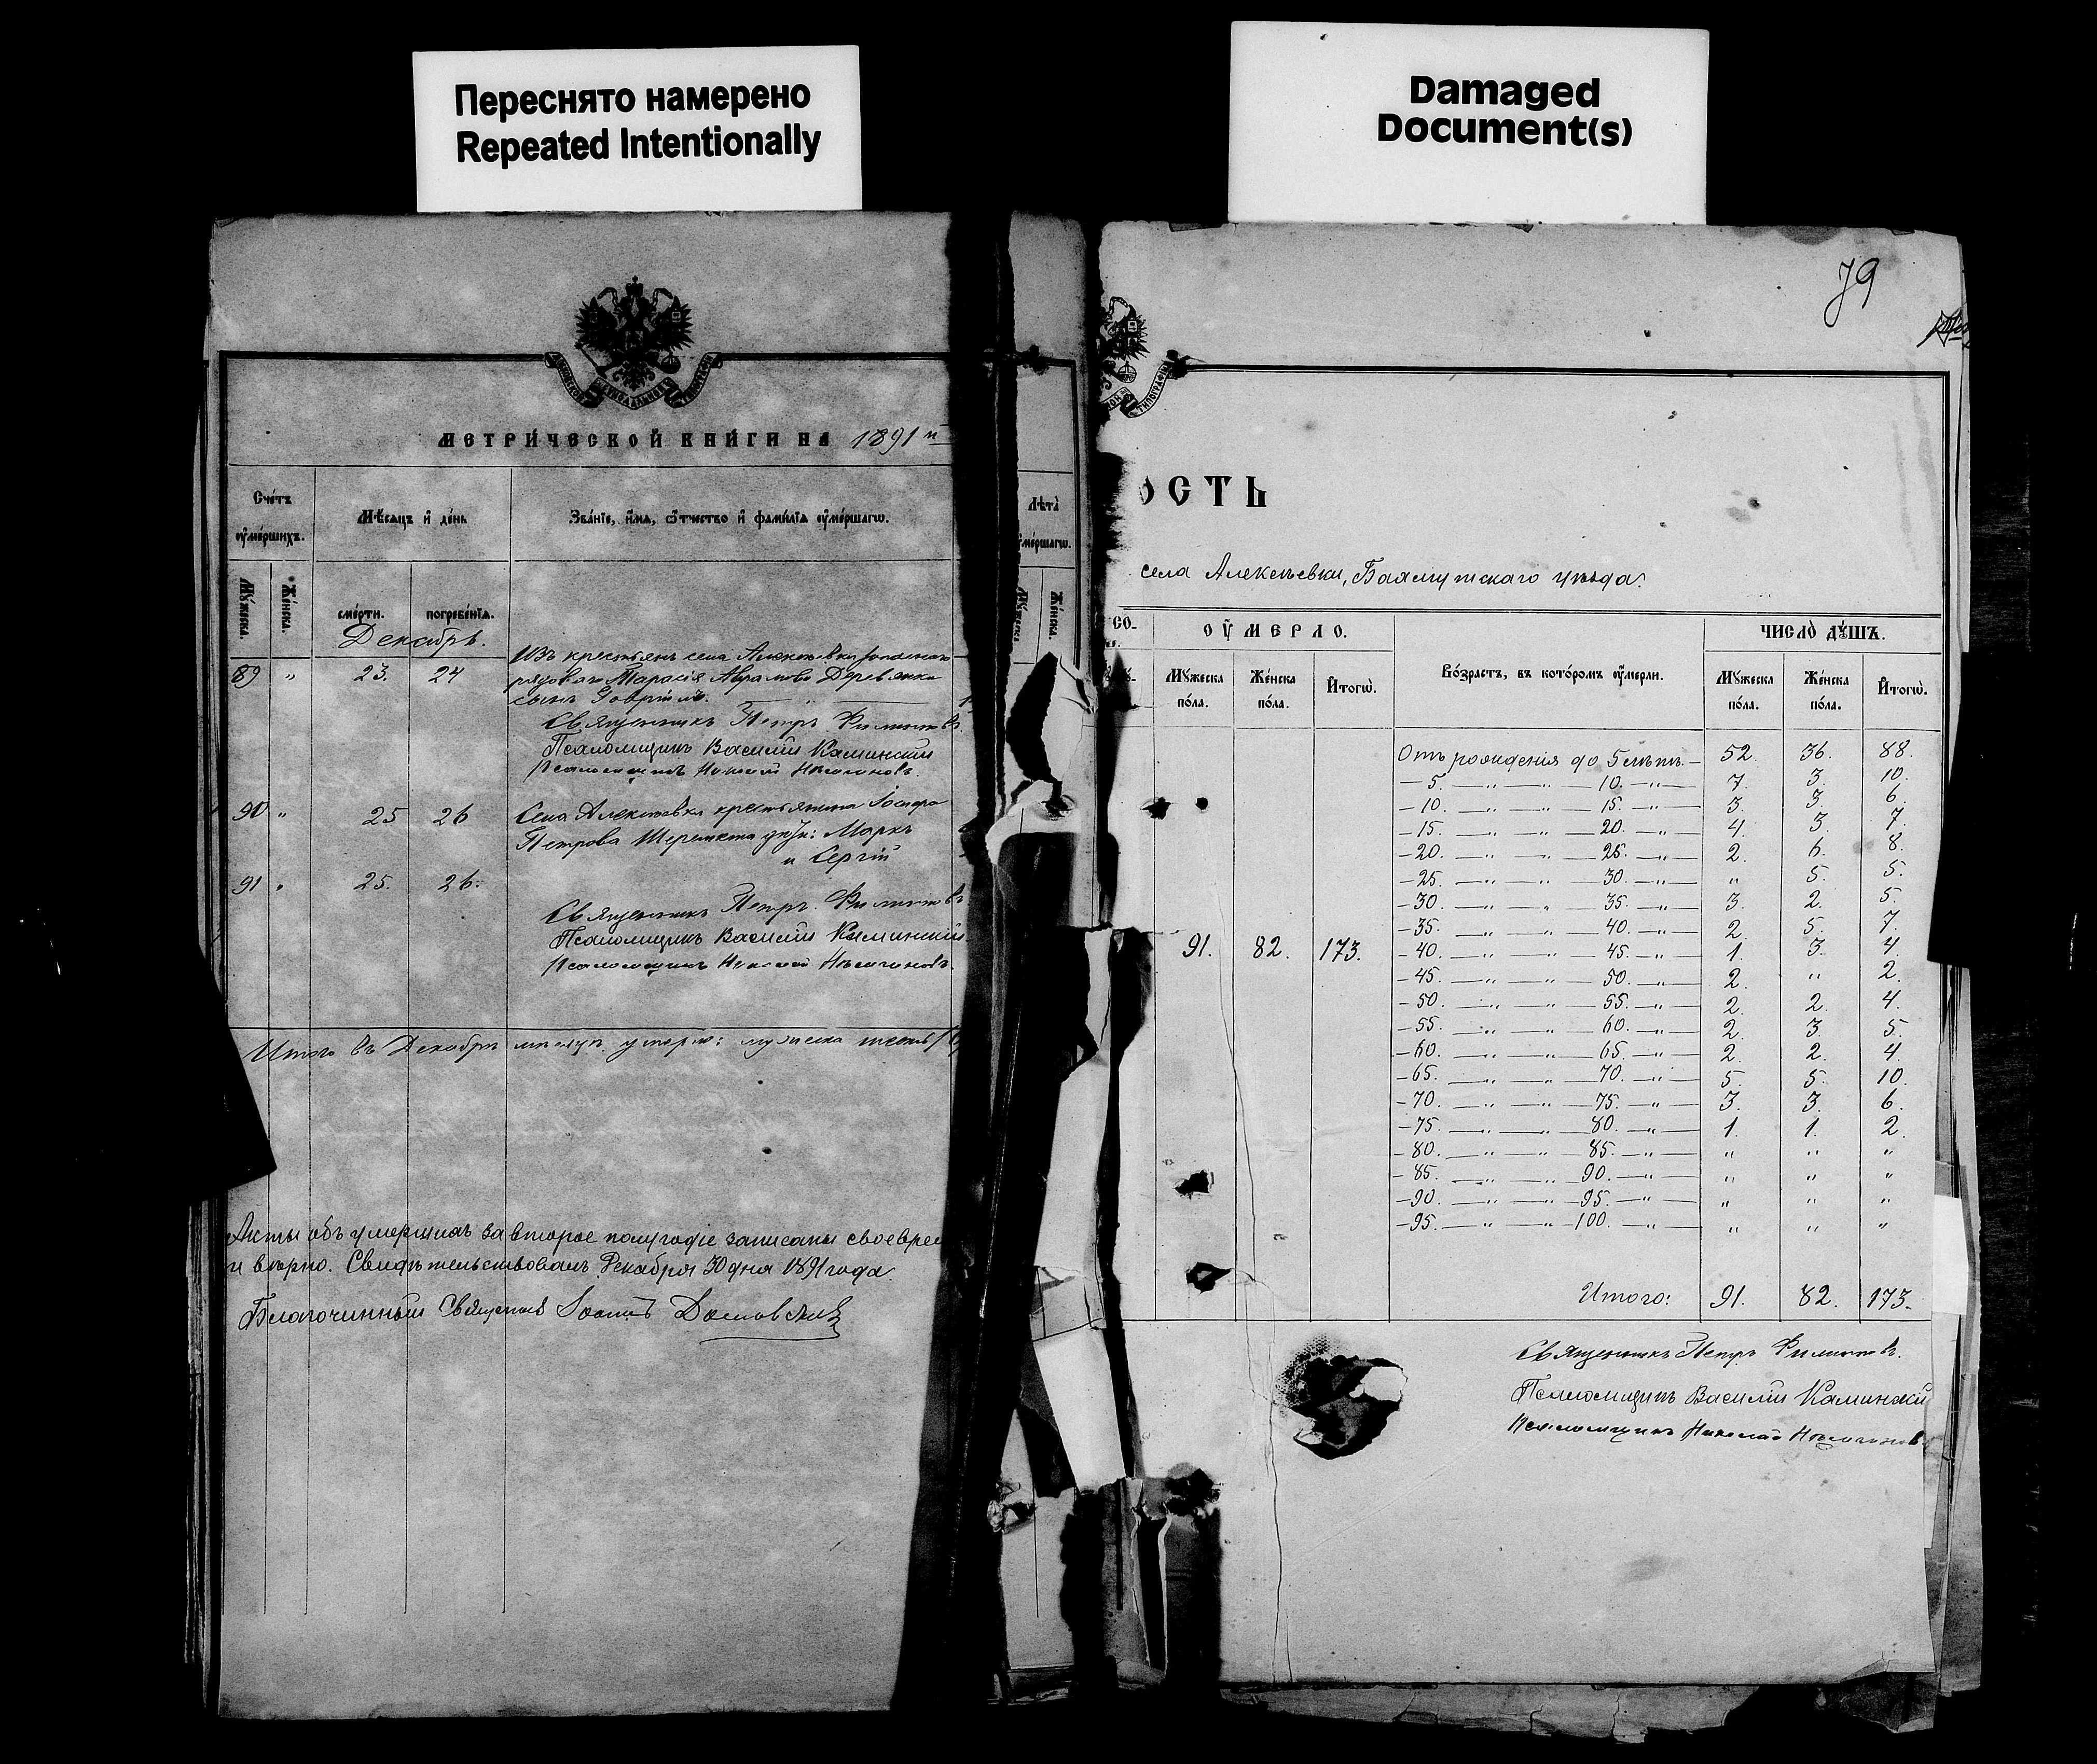 Переснято намерено
Repeated Intentionally
Damaged
Document(s)
79
МЕТРИЧЕСКОЙ КНИГИ НА 1891 й
Счетъ
оумершихъ.
Мѣсяцъ и день
Званїе, имя, ѿчество и фамилїя оумершагѡ.
Мужеска.
Женска.
смерти.
погребенїя.
Декабрь.
89 " 23. 24
Изъ крестьянъ села Алексѣевки
рядоваго Тарасія Аврамова Деревянко
сынъ Гавріилъ.
Священникъ Петръ Филиповъ
Псаломщикъ Василій Каминскій
Псаломщикъ Николай
90 " 25 26
Села Алексѣевки крестьянина Іосифа
Петрова Шеремета дѣти: Маркъ
и Сергій
91 " 25. 26.
Священникъ Петръ Филиповъ
Псаломщикъ Василій Каминскій
Псаломщикъ Николай
Итого въ Декабрѣ мѣсяцѣ умерло: мужеска
Акты объ умершихъ за второе полугодіе записаны своеврем
и вѣрно. Свидѣтельствовалъ Декабря 30 дня 1891 года.
Благочинный Священникъ Іоаннъ
Лѣта
умершагѡ.
Мужеска
Женска.
ТИПОГРАФІИ
ОСТЬ
села Алексѣевки, Бахмутскаго уѣзда.
СО-
ОУМЕРЛО.
ЧИСЛО ДУШЪ.
Мужеска пола.
Женска пола.
Итогѡ.
Возрастъ, въ которомъ оумерли.
Мужеска пола.
Женска пола.
Итогѡ.
Отъ рожденія до 5 лѣтъ. — 52. 36. 88.
— 5. — " — " — 10. — " — 7. 3. 10.
— 10. — " — " — 15. — " — 3. 3. 6.
— 15. — " — " — 20. — " — 4. 3. 7.
— 20. — " — " — 25. — " — 2. 6. 8.
— 25. — " — " — 30. — " — " 5. 5.
— 30. — " — " — 35. — " — 3. 2. 5.
— 35. — " — " — 40. — " — 2. 5. 7.
91. 82. 173.
— 40. — " — " — 45. — " — 1. 3. 4.
— 45. — " — " — 50. — " — 2. " 2.
— 50. — " — " — 55. — " — 2. 2. 4.
— 55. — " — " — 60. — " — 2. 3. 5.
— 60. — " — " — 65. — " — 2. 2. 4.
— 65. — " — " — 70. — " — 5. 5. 10.
— 70. — " — " — 75. — " — 3. 3. 6.
— 75. — " — " — 80. — " — 1. 1. 2.
— 80. — " — " — 85. — " — " " "
— 85. — " — " — 90. — " — " " "
— 90. — " — " — 95. — " — " " "
— 95. — " — " — 100. — " — " " "
Итого: 91. 82. 173.
Священникъ Петръ Филиповъ.
Псаломщикъ Василій Каминскій
Псаломщикъ Николай